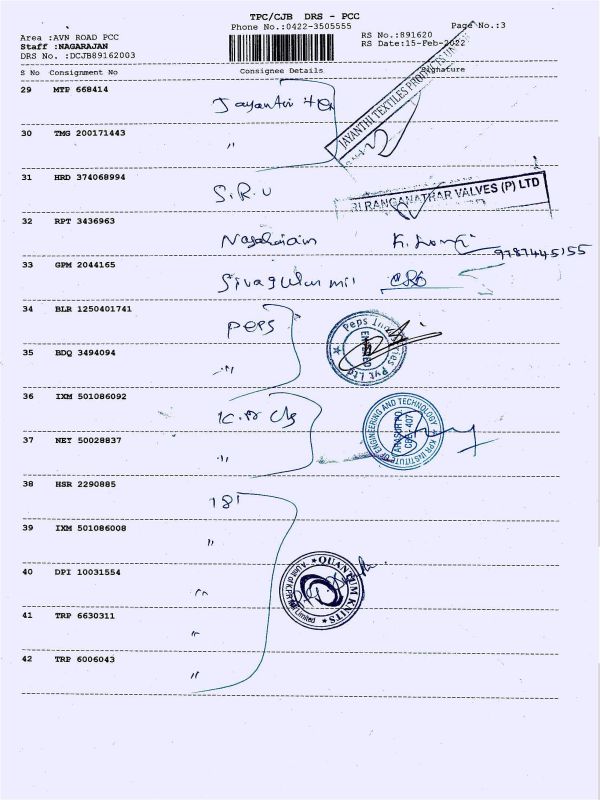 TPC/CJB DRS - PCC
Phone No.:0422-3505555
Page No.:3
Area :AVN ROAD PCC
Staff :NAGARAJAN
DRS No. :DCJB89162003
RS No.:891620
RS Date:15-Feb-2022
S No Consignment No Consignee Details Signature
29 MTP 668414
Jayanthi
JAYANTHI TEXTILES PRODUCTS
30 TMG 200171443
"
31 HRD 374068994
S.R.V
RI RANGANATHAR VALVES (P) LTD
32 RPT 3436963
9787445155
33 GPM 2044165
34 BLR 1250401741
PePS
Peps Industries Pvt Ltd
35 BDQ 3494094
"
36 IXM 501086092
KPR INSTITUTE OF ENGINEERING AND TECHNOLOGY
ARASUR PO
CBE - 407
37 NET 50028837
"
38 HSR 2290885
39 IXM 501086008
"
40 DPI 10031554
"
QUANTUM KNITS
A Unit of KPR Limited
41 TRP 6630311
"
42 TRP 6006043
"